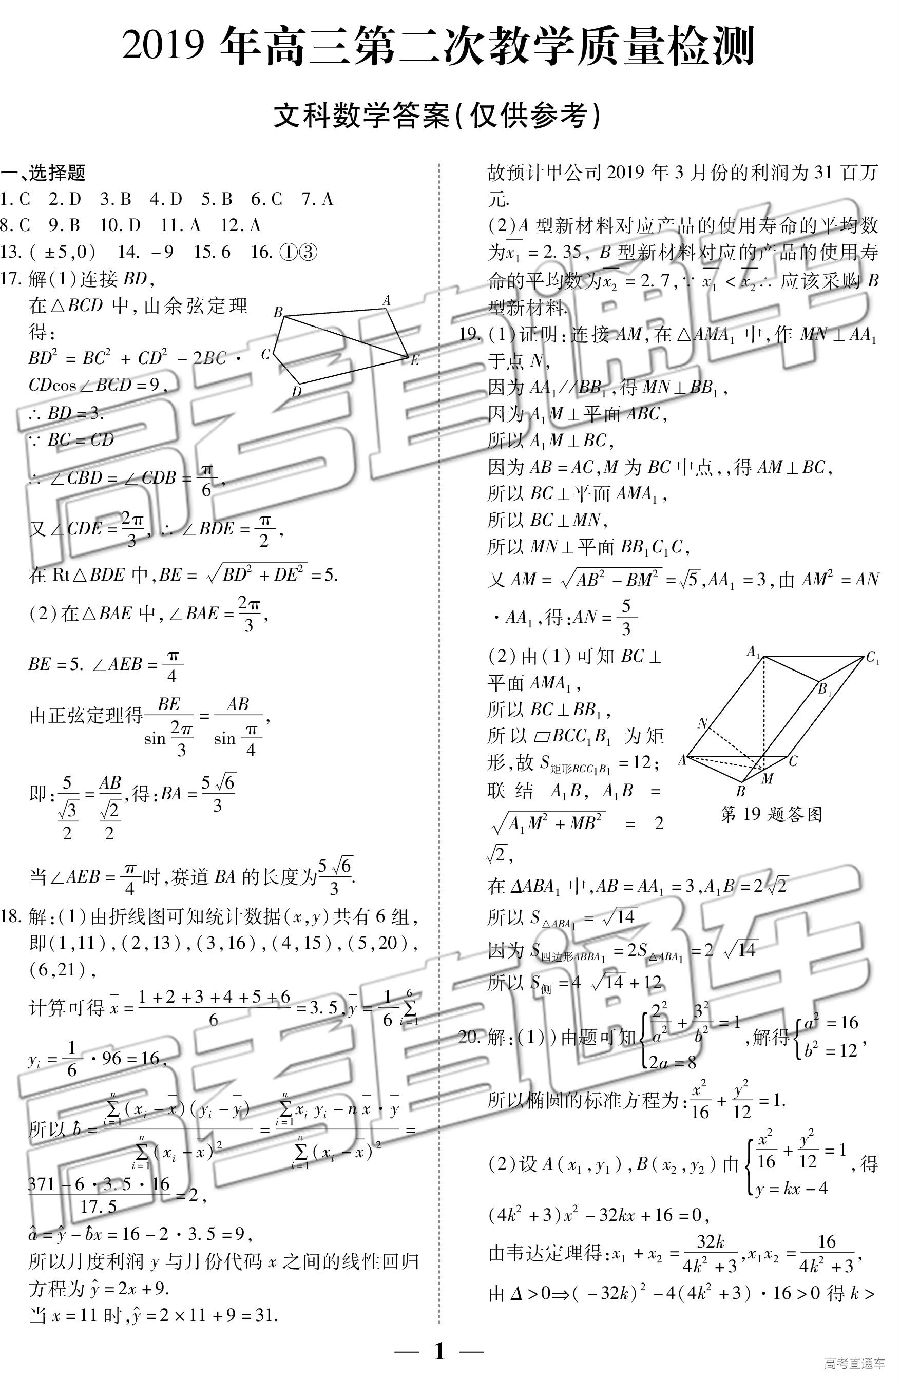 2019 年高三第二次教学质量检测
文科数学答案(仅供参考)
一、选择题
1. C  2. D  3. B  4. D  5. B  6. C  7. A
8. C  9. B  10. D  11. A  12. A
13. (±5,0)  14. －9  15. 6  16. ①③
17. 解(1)连接 BD,
在△BCD 中,由余弦定理
得:
BD² = BC² + CD² － 2BC ·
CDcos∠BCD = 9,
∴ BD = 3.
∵ BC = CD
∴ ∠CBD = ∠CDB = π/6,
又∠CDE = 2π/3, ∴ ∠BDE = π/2,
在 Rt△BDE 中,BE = √(BD² + DE²) = 5.
(2)在△BAE 中,∠BAE = 2π/3,
BE = 5. ∠AEB = π/4
由正弦定理得 BE/sin(2π/3) = AB/sin(π/4),
即: 5/(√3/2) = AB/(√2/2),得:BA = 5√6/3
当∠AEB = π/4时,赛道 BA 的长度为5√6/3.
18. 解:(1)由折线图可知统计数据(x,y)共有 6 组,
即(1,11),(2,13),(3,16),(4,15),(5,20),
(6,21),
计算可得 x̄ = (1+2+3+4+5+6)/6 = 3.5, ȳ = 1/6 Σ(i=1→6)
yᵢ = 1/6 · 96 = 16,
所以 b̂ = Σ(i=1→n)(xᵢ － x̄)(yᵢ － ȳ)/Σ(i=1→n)(xᵢ － x)² = (Σ(i=1→n)xᵢyᵢ － n x̄ · ȳ)/Σ(i=1→n)(xᵢ － x)² =
(371 － 6 · 3.5 · 16)/17.5 = 2,
â = ŷ － b̂x = 16 － 2 · 3.5 = 9,
所以月度利润 y 与月份代码 x 之间的线性回归
方程为 ŷ = 2x + 9.
当 x = 11 时,ŷ = 2 × 11 + 9 = 31.
故预计甲公司 2019 年 3 月份的利润为 31 百万
元.
(2)A 型新材料对应产品的使用寿命的平均数
为x̄₁ = 2.35, B 型新材料对应的产品的使用寿
命的平均数为x̄₂ = 2.7,∵ x̄₁ < x̄₂∴ 应该采购 B
型新材料.
19. (1)证明:连接 AM,在△AMA₁ 中,作 MN⊥AA₁
于点 N,
因为 AA₁//BB₁,得 MN⊥BB₁,
因为 A₁M⊥平面 ABC,
所以 A₁M⊥BC,
因为 AB = AC,M 为 BC 中点,,得 AM⊥BC,
所以 BC⊥平面 AMA₁,
所以 BC⊥MN,
所以 MN⊥平面 BB₁C₁C,
又 AM = √(AB² － BM²) = √5,AA₁ = 3,由 AM² = AN
· AA₁,得:AN = 5/3
(2)由(1)可知 BC⊥
平面 AMA₁,
所以 BC⊥BB₁,
所以▱BCC₁B₁ 为矩
形,故 S矩形BCC₁B₁ = 12;
联结 A₁B, A₁B =
√(A₁M² + MB²) = 2
√2,
在 ΔABA₁ 中,AB = AA₁ = 3,A₁B = 2√2
所以 S△ABA₁ = √14
因为 S四边形ABBA₁ = 2S△ABA₁ = 2√14
所以 S侧 = 4√14 + 12
20. 解:(1))由题可知{2²/a² + 3²/b² = 1, 2a = 8 ,解得{a² = 16, b² = 12,
所以椭圆的标准方程为: x²/16 + y²/12 = 1.
(2)设 A(x₁,y₁),B(x₂,y₂)由{x²/16 + y²/12 = 1, y = kx － 4 ,得
(4k² + 3)x² － 32kx + 16 = 0,
由韦达定理得:x₁ + x₂ = 32k/(4k² + 3),x₁x₂ = 16/(4k² + 3),
由 Δ > 0⇒( － 32k)² － 4(4k² + 3) · 16 > 0 得 k >
B A C D E
A₁ C₁ B₁ N A C M B
第 19 题答图
— 1 —
高考直通车
高考直通车
高考直通车